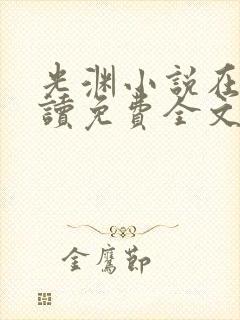 光渊小説在
讀免費全文
金鷹節